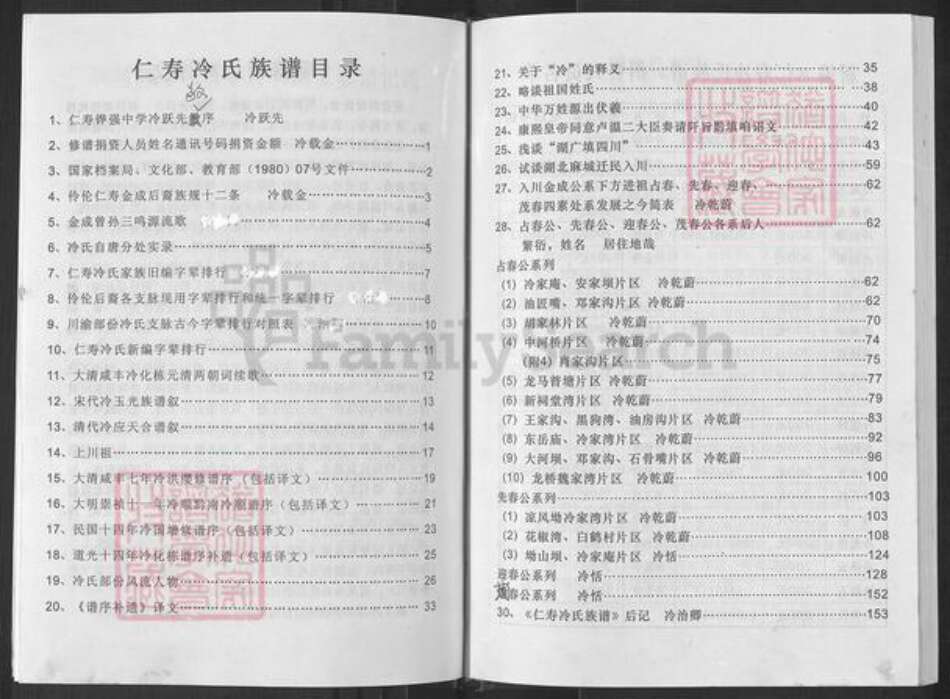 仁寿冷氏族谱目录
1、仁寿铧强中学冷跃先教序 冷跃先
2、修谱捐资人员姓名通讯号码捐资金额 冷载金 1
3、国家档案局、文化部、教育部（1980）07号文件 2
4、伶伦仁寿金成后裔族规十二条 冷载金 3
5、金成曾孙三鸣源流歌 4
6、冷氏自唐分处实录 5
7、仁寿冷氏家族旧编字辈排行 7
8、伶伦后裔各支脉现用字辈排行和统一字辈排行 8
9、川渝部份冷氏支脉古今字辈排行对照表 10
10、仁寿冷氏新编字辈排行 11
11、大清咸丰冷化栋元清两朝词续歌 12
12、宋代冷玉光族谱叙 13
13、清代冷应天合谱叙 14
14、上川祖 17
15、大清咸丰七年冷洪缨修谱序（包括译文） 19
16、大明崇祯十一年冷 谱序（包括译文） 21
17、民国十四年冷国 修谱序（包括译文） 23
18、道光十四年冷化栋谱序补遗（包括译文） 25
19、冷氏部份风流人物 26
20、《谱序补遗》译文 33
21、关于“冷”的释义 35
22、略谈祖国姓氏 38
23、中华万姓源出伏羲 40
24、康熙皇帝同意卢温二大臣奏请阡旨黔填咱语文 42
25、浅谈“湖广填四川” 43
26、试谈湖北麻城迁民入川 59
27、入川金成公系下方进祖占春、先春、迎春、
茂春四素处系发展之今简表 冷乾蔚
28、占春公、先春公、迎春公、茂春公各系后人 62
繁衍，姓名 居住地哉
占春公系列
(1) 冷家庵、安家坝片区 冷乾蔚 62
(2) 油匠嘴、邓家沟片区 冷乾蔚 62
(3) 胡家林片区 冷乾蔚 70
(4) 中河桥片区 冷乾蔚 74
(附4) 肖家沟片区 75
(5) 龙马普塘片区 冷乾蔚 77
(6) 新祠堂湾片区 冷乾蔚 79
(7) 王家沟、黑狗湾、油房沟片区 冷乾蔚 83
(8) 东岳庙、冷家湾片区 冷乾蔚 92
(9) 大河坝、邓家沟、石骨嘴片区 冷乾蔚 96
(10) 龙桥魏家湾片区 冷乾蔚 100
先春公系列 103
(1) 凉风坳冷家湾片区 冷乾蔚 103
(2) 花椒湾、白鹤村片区 冷乾蔚 108
(3) 坳山坝、冷家庵片区 冷恬 124
迎春公系列 冷恬 128
茂春公系列 冷恬 152
30、《仁寿冷氏族谱》后记 冷治卿 153
FamilySearch